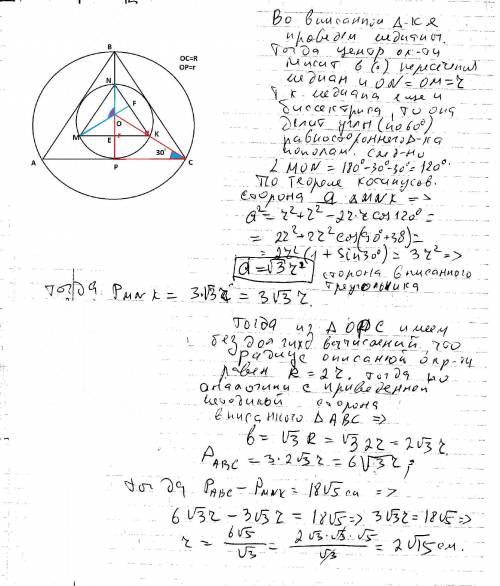 Во вписанном Δ-ке
проведем медианы.
Тогда центр ок-ти
лежит в (.) пересечения
медиан и ON = OM = r
Т.к. медиана еще и
биссектриса, то она
делит углы (по 60°)
равностороннего Δ-ка
пополам. след-но
∠ MON = 180°-30°-30° = 120°.
По теореме косинусов.
сторона a ΔMNK =>
a² = r² + r² - 2r·r cos120° =
= 2r² + 2r² cos(90°+30) =
= 2r² (1 + sin30°) = 3r² =>
a = √3 r²
сторона вписанного
треугольника
тогда P MNK = 3·√3 r = 3√3 r.
B
OC=R
OP=r
N
F
O
M
E
r
K
30°
A
P
C
Тогда из ΔOPC имеем
без долгих вычислений, что
радиус описанной окр-ти
равен R = 2r. тогда по
аналогии с приведенной
сторона
вписанного ΔABC =>
b = √3 R = √3 2r = 2√3 r
P ABC = 3·2√3 r = 6√3 r;
тогда P ABC - P MNK = 18√5 см =>
6√3 r - 3√3 r = 18√5 => 3√3 r = 18√5 =>
r = 6√5/√3 = 2√3·√3·√5/√3 = 2√15 см.